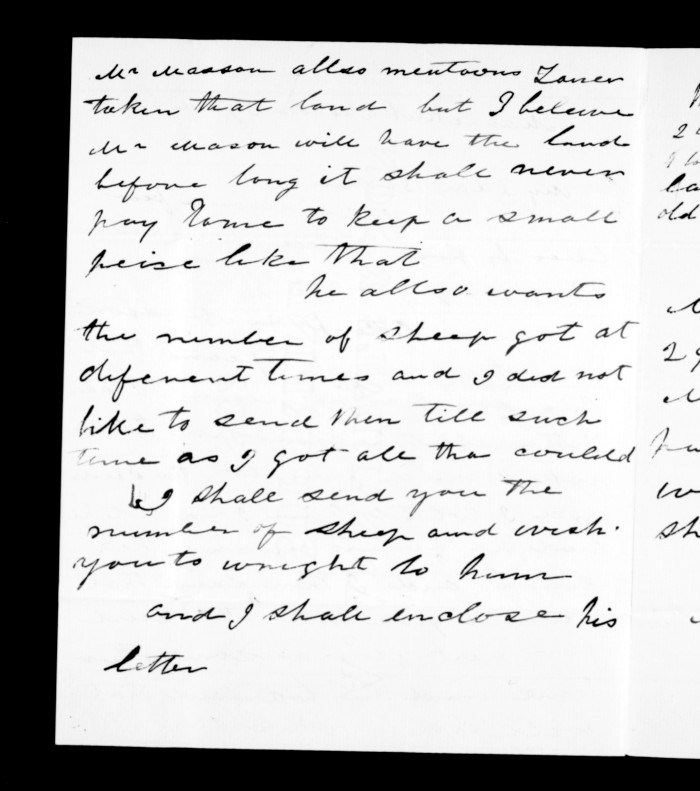 Mr Masson allso mentoons
taken that land but I beleive
Mr Mason will have the land
before long it shall never
pay to keep a small
peise like that
he allso wants
the number of sheep got at
diferent times and I did not
like to send then till such
time as I got all tha coulld
I shall send you the
number of sheep and wish
you to wright to him
and I shall enclose his
letter
2
la
old
2
sh